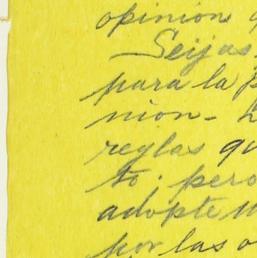 opinion
Seijas
para la
nion-
reglas qu
to; pero
adopte
por las o